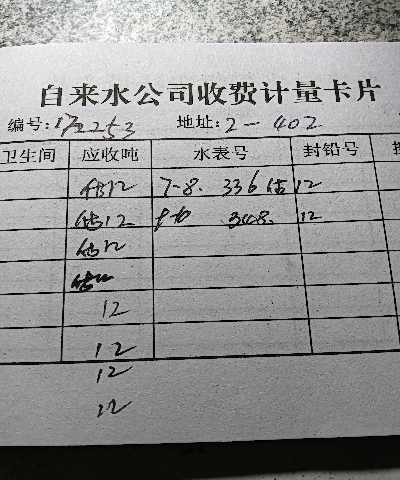 自来水公司收费计量卡片
编号:172253 地址:2-402
卫生间 应收吨 水表号 封铅号
估12 7-8. 336估12
估12 9-10 348. 12
估12
估12
12
12
12
12